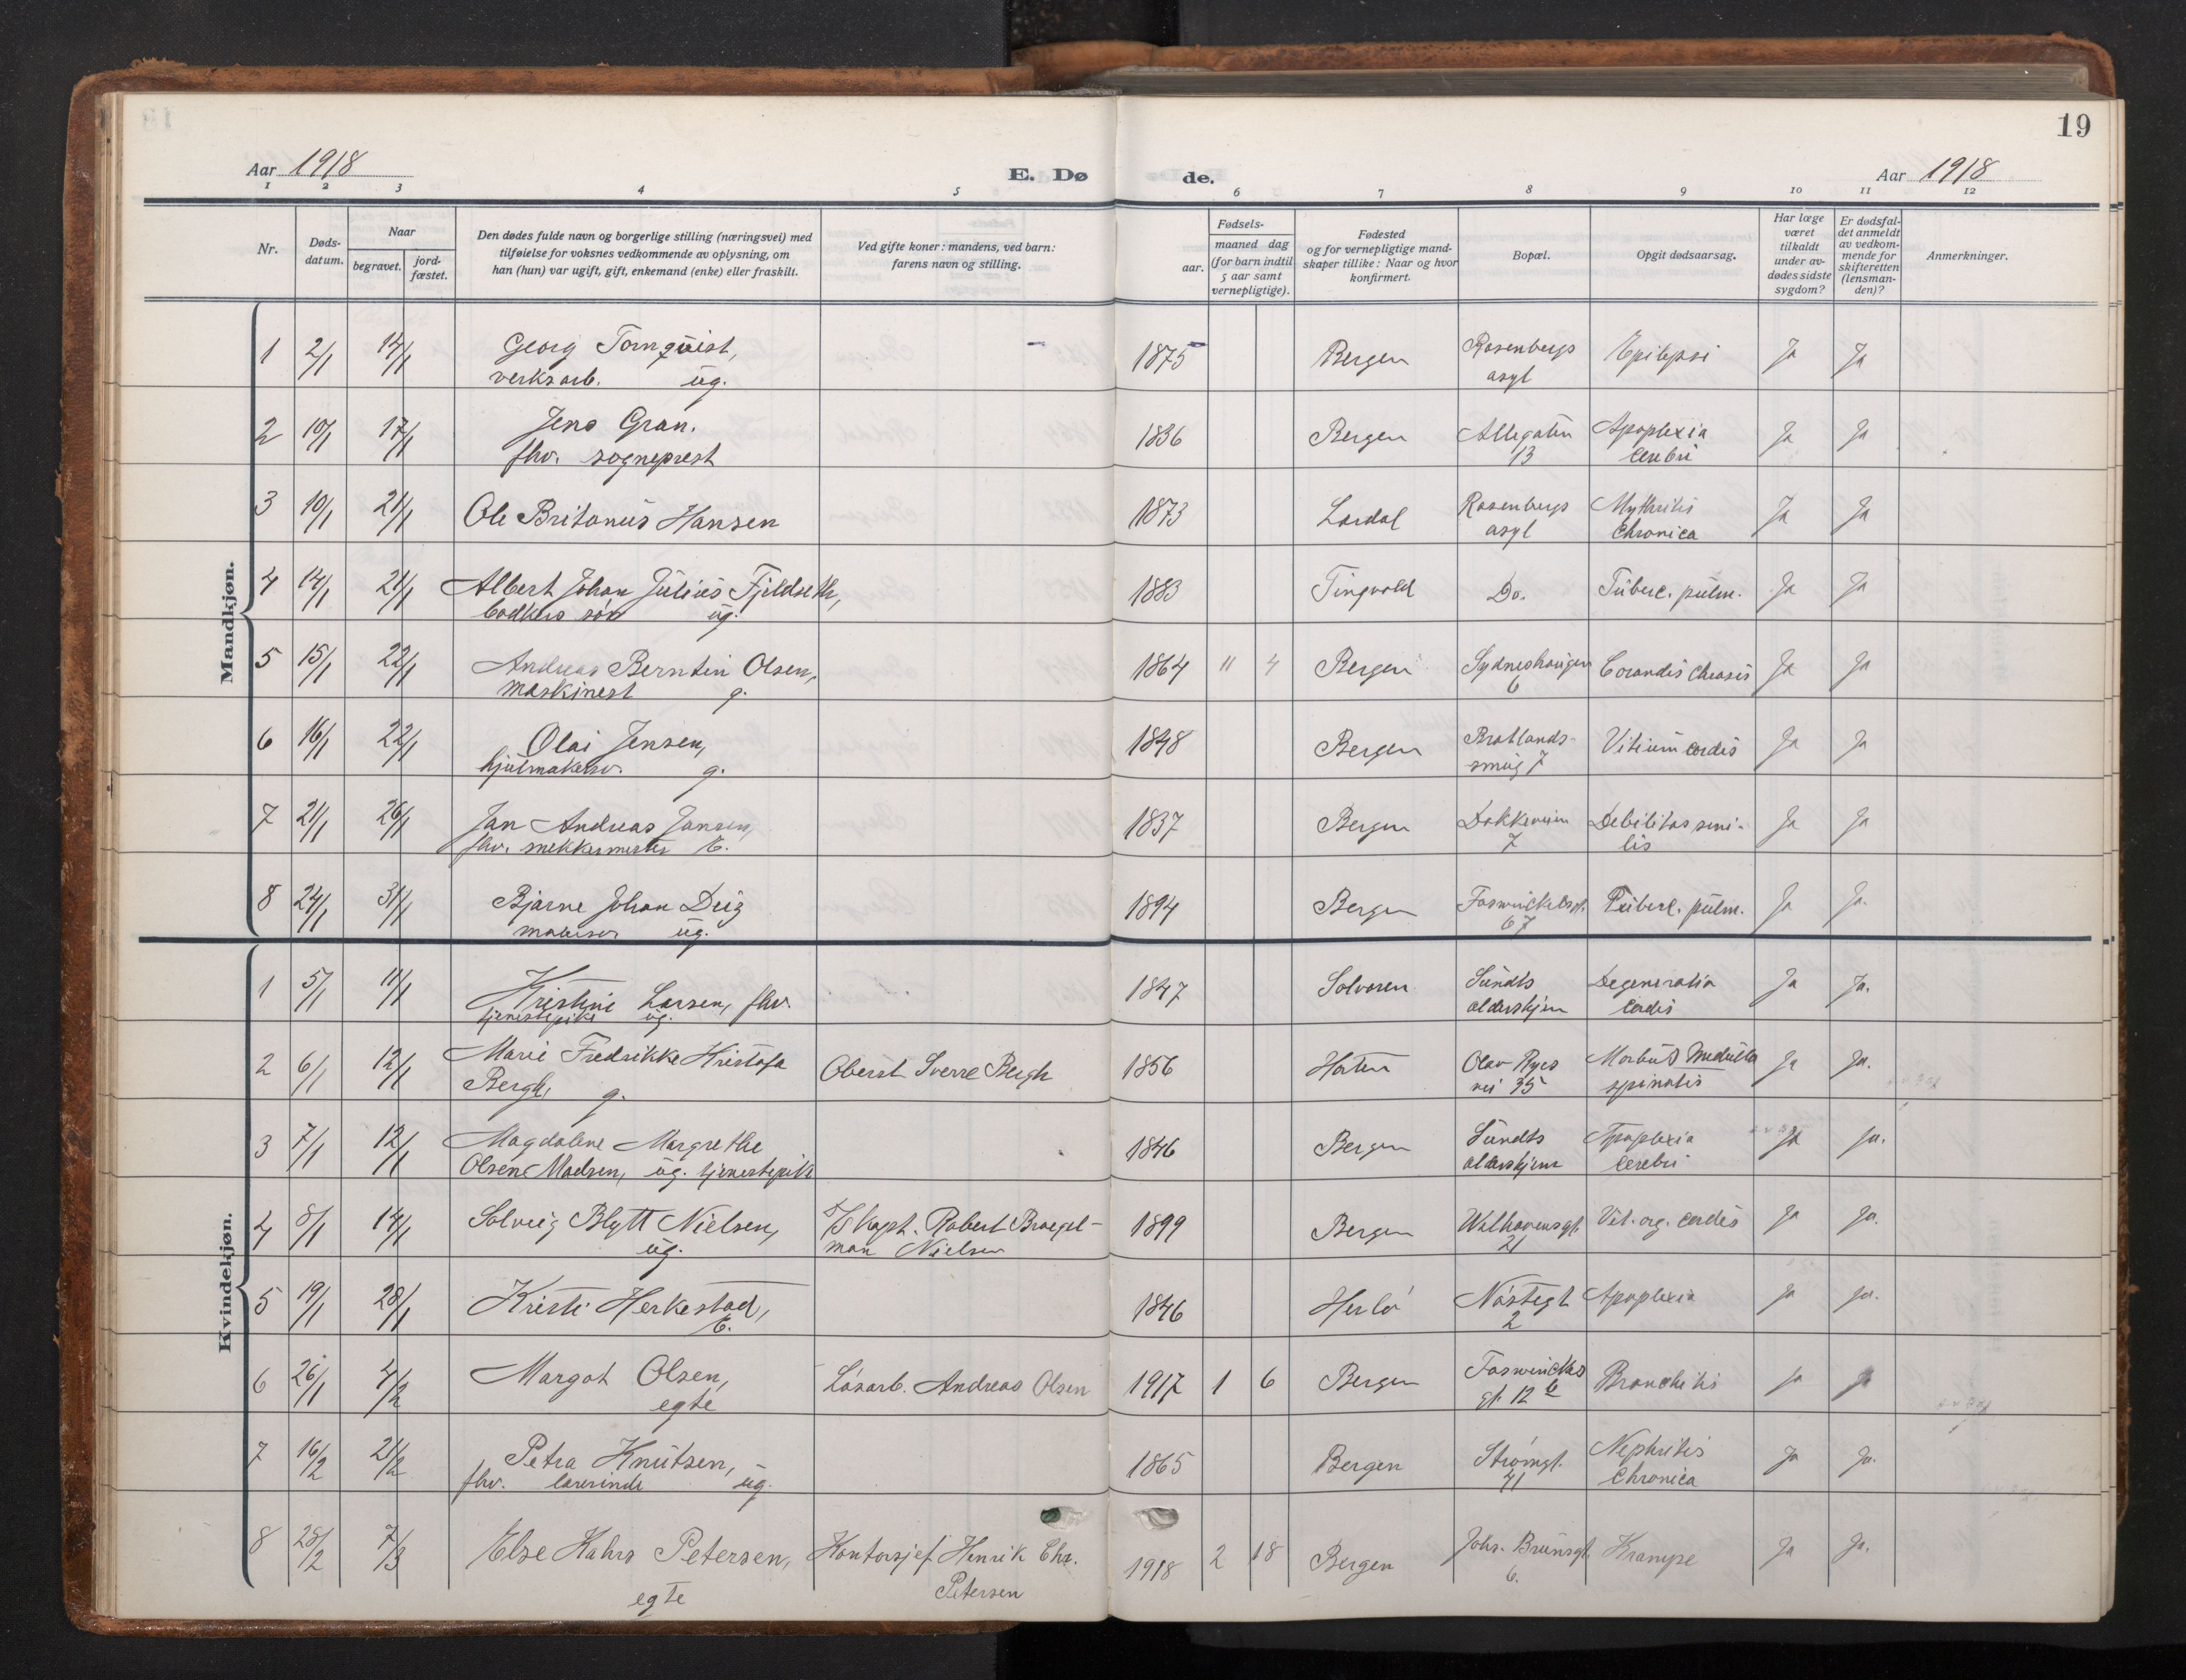 19
Aar 1918
E. Dø de.
Aar 1918
1 2 3 4 5 6 7 8 9 10 11 12
Nr.
Døds-
datum.
Naar
begravet.
jord-
fæstet.
Den dødes fulde navn og borgerlige stilling (næringsvei) med
tilføielse for voksnes vedkommende av oplysning, om
han (hun) var ugift, gift, enkemand (enke) eller fraskilt.
Ved gifte koner: mandens, ved barn:
farens navn og stilling.
Fødsels-
aar.
maaned dag
(for barn indtil
5 aar samt
vernepligtige).
Fødested
og for vernepligtige mand-
skaper tillike: Naar og hvor
konfirmert.
Bopæl.
Opgit dødsaarsag.
Har læge
været
tilkaldt
under av-
dødes sidste
sygdom?
Er dødsfal-
det anmeldt
av vedkom-
mende for
skifteretten
(lensman-
den)?
Anmerkninger.
Mandkjøn.
1 2/1 14/1 Georg Tornquist, 1875 Bergen Rosenbergs Epilepsi Ja Ja
verksarb. ug. asyl
2 10/1 17/1 Jens Gran. 1836 Bergen Allegaten Apoplexia Ja Ja
fhv. sogneprest 13 cerebri
3 10/1 21/1 Ole Britanus Hansen 1873 Lardal Rosenbergs Ja Ja
asyl Chronica
4 14/1 21/1 Albert Johan Julius Fjeldseth, 1883 Tingvold Do. Tuberc. pulm. Ja Ja
bødkers søn ug.
5 15/1 22/1 Andreas Berntin Olsen, 1864 11 4 Bergen Sydneshaugen Ja Ja
maskinest g. 6
6 16/1 22/1 Olai Jensen, 1848 Bergen Bratlands- Vitium cordis Ja Ja
hjulmakersv. g. smug 7
7 21/1 26/1 Jan Andreas Jansen, 1837 Bergen Dokkeveien Debilitas seni-
fhv. snekkermester E. 7 lis Ja Ja
8 24/1 31/1 Bjarne Johan 1894 Bergen Foswinckelsgt. Tuberc. pulm. Ja Ja.
malersv ug. 67
Kvindekjøn.
1 5/1 11/1 Kristine Larsen, fhv. 1847 Solvorn Sundts Degeneratio Ja Ja.
tjenestepike ug. aldershjem Cordis
2 6/1 12/1 Marie Fredrikke Kristofa Oberst Sverre Bergh 1856 Horten Olav Ryes Morbus medulla Ja Ja.
Bergh, g. vei 35 spinalis
3 7/1 12/1 Magdalene Margrethe 1846 Bergen Sundts Apoplexia Ja Ja.
Olsen Madsen, ug. tjenestepike aldershjem Cerebri
4 8/1 14/1 Solveig Blytt Nielsen, S/S Kapt. Robert Braegel- 1899 Bergen Welhavensgt. Vit. org. cordis Ja Ja.
ug. man Nielsen 21
5 19/1 28/1 Kristi Herkestad, 1846 Herlø Nøstegt Apoplexia Ja Ja.
E. 2
6 26/1 4/2 Margot Olsen, Løsarb. Andreas Olsen 1917 1 6 Bergen Foswinckels Bronchitis Ja Ja
egte gt. 12 b
7 16/2 21/2 Petra Knutsen, 1865 Bergen Strømgt. Nephritis Ja Ja.
fhv. lærerinde ug. 41 Chronica
8 28/2 7/3 Else Kahrs Petersen, Kontorsjef Henrik Chr. 1918 2 18 Bergen Johs. Brunsgt. Krampe Ja Ja.
egte Petersen 6.